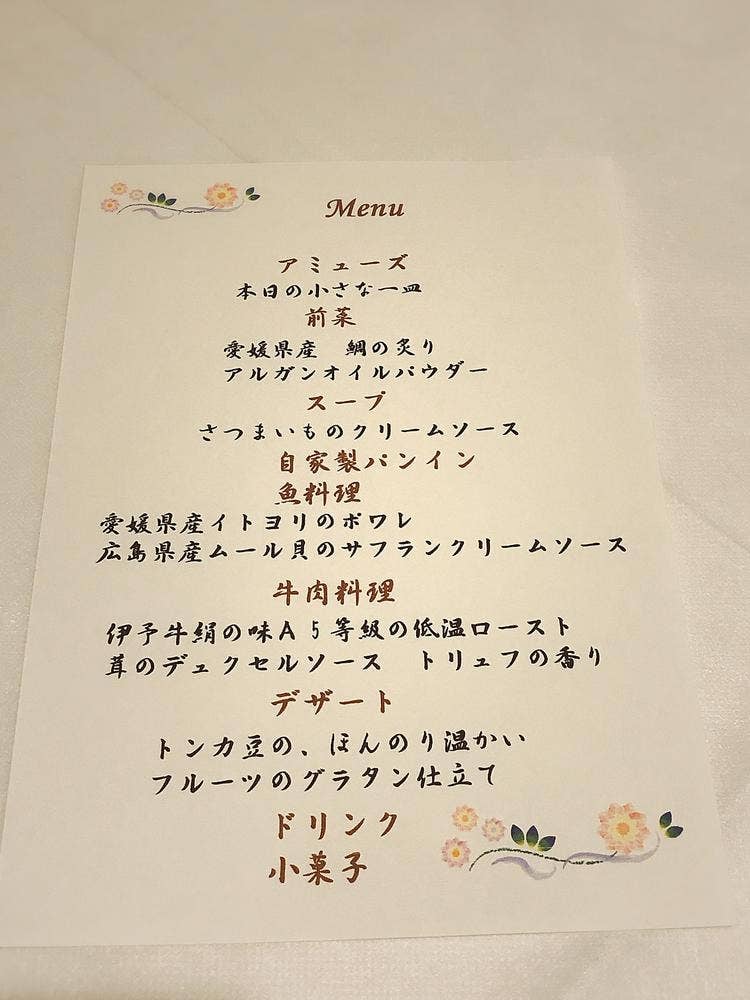 Menu
アミューズ
本日の小さな一皿
前菜
愛媛県産　鯛の炙り
アルガンオイルパウダー
スープ
さつまいものクリームソース
自家製パンイン
魚料理
愛媛県産イトヨリのポワレ
広島県産ムール貝のサフランクリームソース
牛肉料理
伊予牛絹の味A5等級の低温ロースト
茸のデュクセルソース　トリュフの香り
デザート
トンカ豆の、ほんのり温かい
フルーツのグラタン仕立て
ドリンク
小菓子